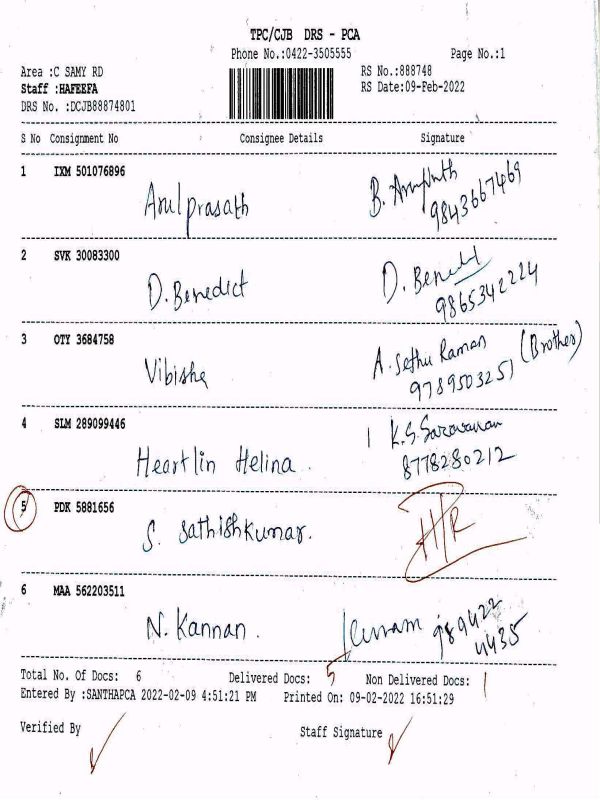 TPC/CJB DRS - PCA
Phone No.:0422-3505555 Page No.:1
Area :C SAMY RD RS No.:888748
Staff :HAFEEFA RS Date:09-Feb-2022
DRS No. :DCJB88874801
S No Consignment No Consignee Details Signature
1 IXM 501076896
Arulprasath B. 9843667469
2 SVK 30083300
D. Benedict D. Benedict 9865342224
3 OTY 3684758
Vibisha A. Sethu Raman (Brother)
9789503251
4 SLM 289099446
Heartlin Helina. K.S. Saravanan
8778280212
5 PDK 5881656
S. Sathishkumar.
6 MAA 562203511
N. Kannan. 989422
4435
Total No. Of Docs: 6 Delivered Docs: 5 Non Delivered Docs: 1
Entered By :SANTHAPCA 2022-02-09 4:51:21 PM Printed On: 09-02-2022 16:51:29
Verified By Staff Signature